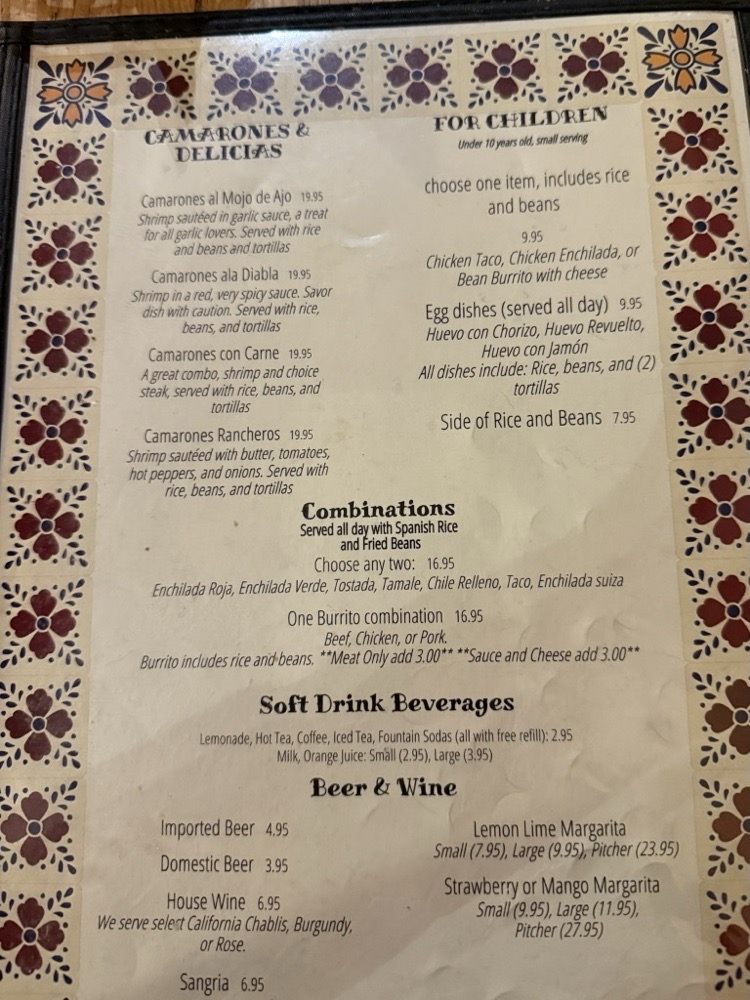 CAMARONES &
DELICIAS
Camarones al Mojo de Ajo 19.95
Shrimp sautéed in garlic sauce, a treat
for all garlic lovers. Served with rice
and beans and tortillas
Camarones ala Diabla 19.95
Shrimp in a red, very spicy sauce. Savor
dish with caution. Served with rice,
beans, and tortillas
Camarones con Carne 19.95
A great combo, shrimp and choice
steak, served with rice, beans, and
tortillas
Camarones Rancheros 19.95
Shrimp sautéed with butter, tomatoes,
hot peppers, and onions. Served with
rice, beans, and tortillas
FOR CHILDREN
Under 10 years old, small serving
choose one item, includes rice
and beans
9.95
Chicken Taco, Chicken Enchilada, or
Bean Burrito with cheese
Egg dishes (served all day) 9.95
Huevo con Chorizo, Huevo Revuelto,
Huevo con Jamón
All dishes include: Rice, beans, and (2)
tortillas
Side of Rice and Beans 7.95
Combinations
Served all day with Spanish Rice
and Fried Beans
Choose any two: 16.95
Enchilada Roja, Enchilada Verde, Tostada, Tamale, Chile Relleno, Taco, Enchilada suiza
One Burrito combination 16.95
Beef, Chicken, or Pork.
Burrito includes rice and beans. **Meat Only add 3.00** **Sauce and Cheese add 3.00**
Soft Drink Beverages
Lemonade, Hot Tea, Coffee, Iced Tea, Fountain Sodas (all with free refill): 2.95
Milk, Orange Juice: Small (2.95), Large (3.95)
Beer & Wine
Imported Beer 4.95
Domestic Beer 3.95
House Wine 6.95
We serve select California Chablis, Burgundy,
or Rose.
Sangria 6.95
Lemon Lime Margarita
Small (7.95), Large (9.95), Pitcher (23.95)
Strawberry or Mango Margarita
Small (9.95), Large (11.95),
Pitcher (27.95)